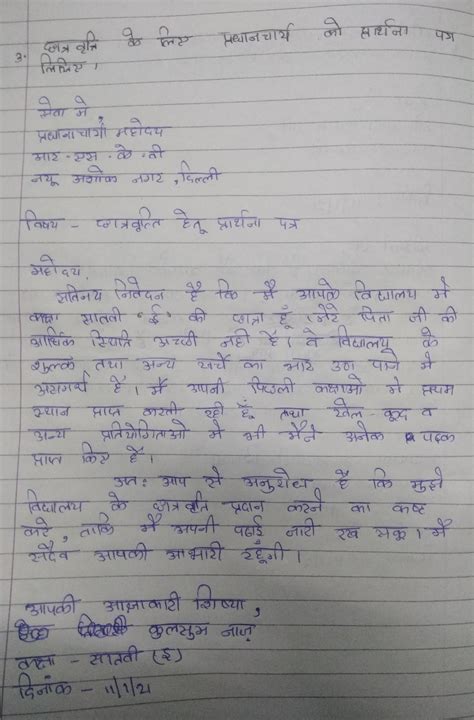 3. छात्रवृत्ति के लिए प्रधानचार्य को प्रार्थना पत्र
लिखिए।
सेवा में,
प्रधानाचार्या महोदय
आर. एस. के. वी
न्यू अशोक नगर, दिल्ली
विषय - छात्रवृत्ति हेतू प्रार्थना पत्र
महोदय,
सविनय निवेदन है कि मैं आपके विद्यालय में
कक्षा सातवी 'ई' की छात्रा हूँ। मेरे पिता जी की
आर्थिक स्थिति अच्छी नहीं है। वे विद्यालय के
शुल्क तथा अन्य खर्चे का भार उठा पाने में
असमर्थ है। मैं अपनी पिछली कक्षाओ में प्रथम
स्थान प्राप्त करती रही हूँ तथा खेल-कूद व
अन्य प्रतियोगिताओ में भी मैंने अनेक पदक
प्राप्त किए हैं।
अत: आप से अनुरोध है कि मुझे
विद्यालय के छात्रवृति प्रदान करने का कष्ट
करे, ताकि मैं अपनी पढ़ाई जारी रख सकू। मैं
सदैव आपकी आभारी रहूँगी।
आपकी आज्ञाकारी शिष्या,
कुलसुम नाज़
कक्षा - सातवी (ई)
दिनांक - 11/1/21